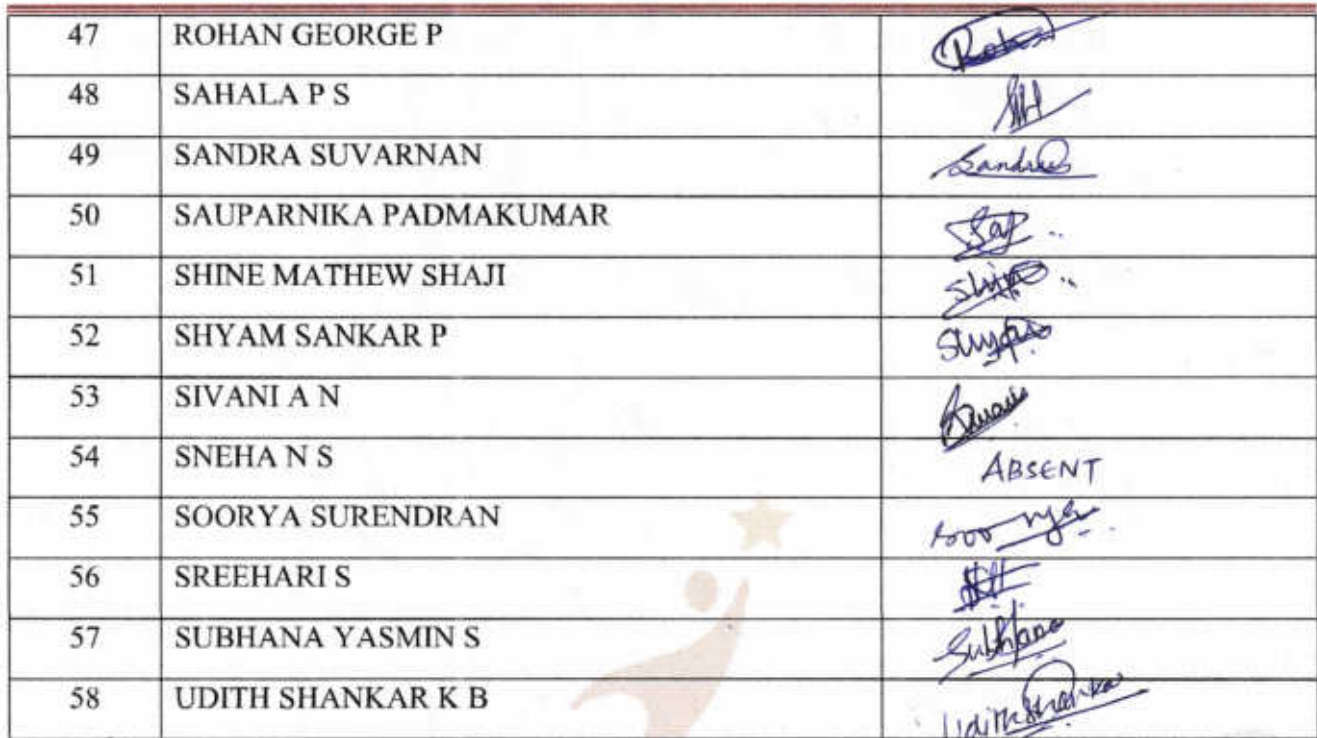 47 ROHAN GEORGE P
48 SAHALA P S
49 SANDRA SUVARNAN Sandra
50 SAUPARNIKA PADMAKUMAR
51 SHINE MATHEW SHAJI Shine
52 SHYAM SANKAR P
53 SIVANI A N
54 SNEHA N S ABSENT
55 SOORYA SURENDRAN
56 SREEHARI S
57 SUBHANA YASMIN S Subhana
58 UDITH SHANKAR K B Udith Shankar